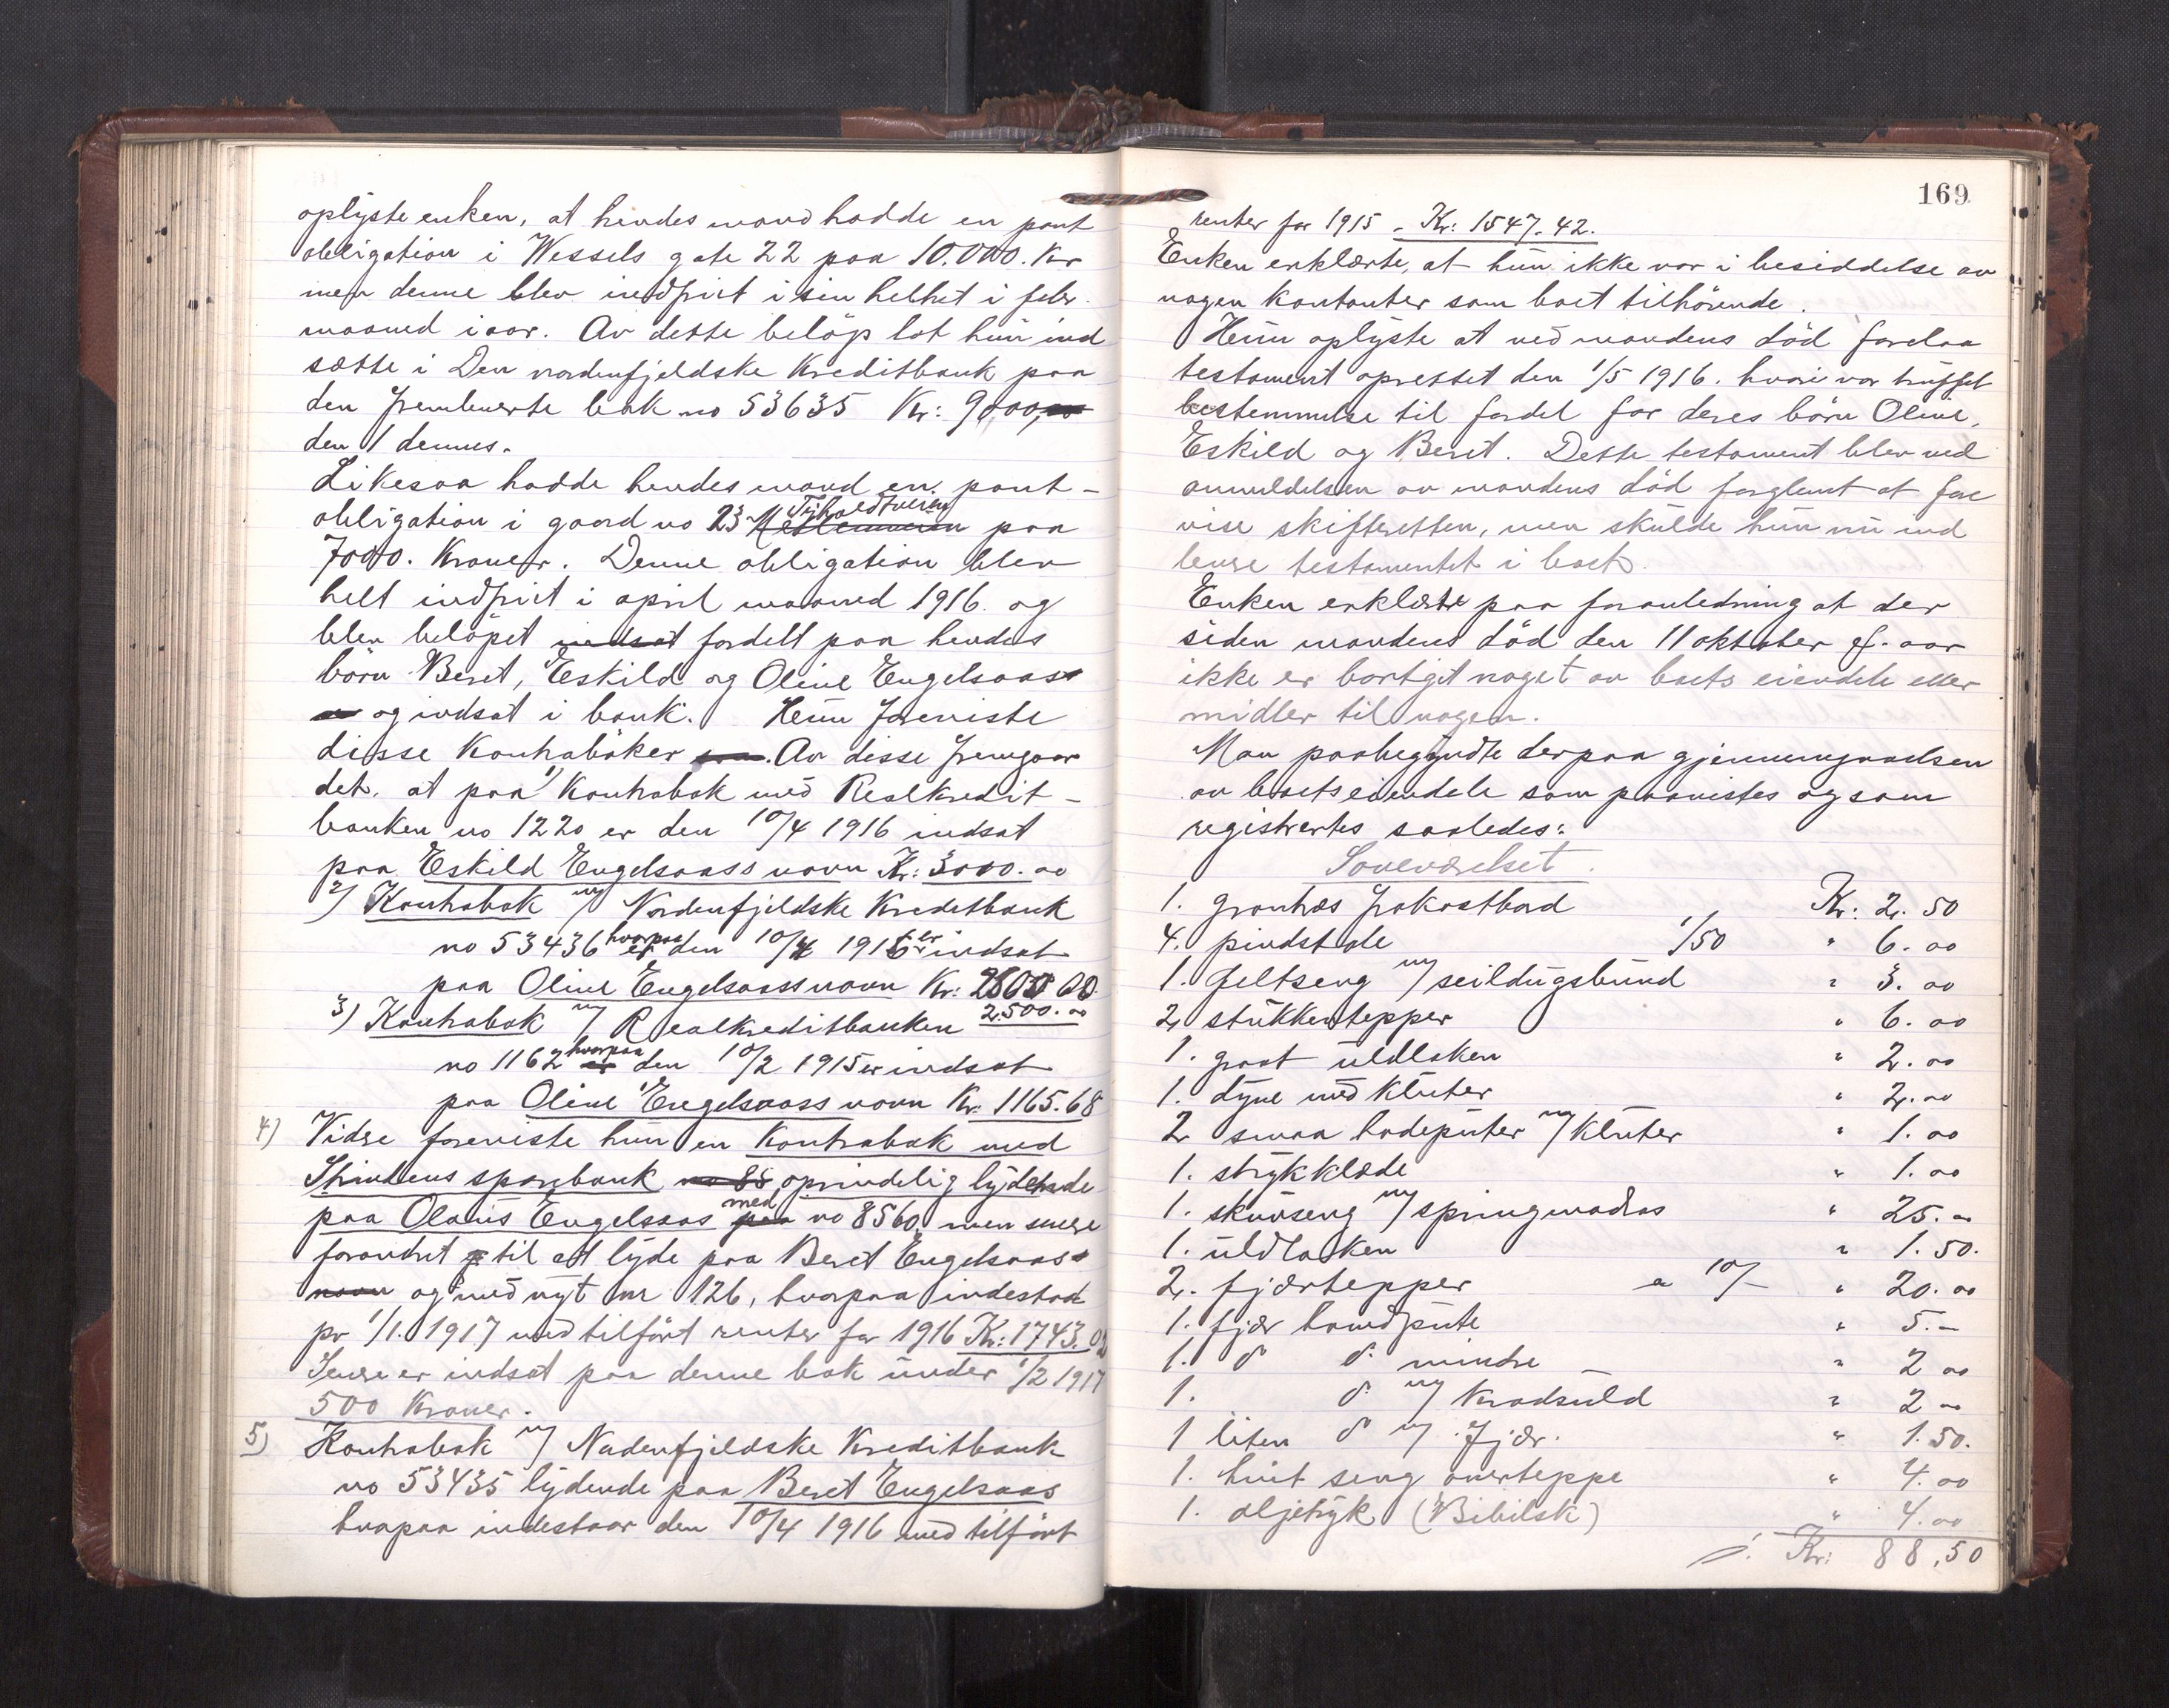 oplyste enken, at hendes mand hadde en pant
obligation i Wessels gate 22 paa 10.000. Kr
men denne blev indfriet i sin helhet i febr.
maaned iaar. Av dette beløp lot hun ind
sætte i Den nordenfjeldske Kreditbank paa
den fremlagte bok no 53635 Kr: 9000,00
den 1 dennes.
Likesaa hadde hendes mand en pant-
obligation i gaard no 23 Tyholdtveien paa
7000. Kroner. Denne obligation blev
helt indfriet i april maaned 1916 og
blev beløpet indsat fordelt paa hendes
børn Beret, Eskild og Oline Engelsaas
og indsat i bank. Hun foreviste
disse Kontrabøker. Av disse fremgaar
det, at paa 1) Kontrabok med Realkredit-
banken no 1220 er den 10/4 1916 indsat
paa Eskild Engelsaass navn Kr: 3000.00
2) Kontrabok m/ Nordenfjeldske Kreditbank
no 53436 hvorpaa den 10/4 1916 er indsat
paa Oline Engelsaass navn Kr: 2500 00
2.500.00
3) Kontrabok m/ Realkreditbanken
no 1162 hvorpaa den 10/2 1915 er indsat
paa Oline Engelsaass navn Kr. 1165.68
4) Vidre foreviste hun en Kontrabok med
Strindens sparebank no 85 oprindelig lydende
paa Olaus Engelsaas med no 8560, men senere
forandret til at lyde paa Beret Engelsaas
navn og med nyt nr 126, hvorpaa indestod
pr 1/1. 1917 med tilført renter for 1916 Kr: 1743.02
Senere er indsat paa denne bok under 1/2 1917
500 Kroner.
5) Kontrabok m/ Nordenfjeldske Kreditbank
no 53435 lydende paa Beret Engelsaas
hvorpaa indestaar den 10/4 1916 med tilført
169
renter for 1915 - Kr: 1547.42.
Enken erklærte, at hun ikke var i besiddelse av
nogen kontanter som boet tilhørende.
Hun oplyste at ved mandens død forelaa
testament oprettet den 1/5 1916. hvori var truffet
bestemmelse til fordel for deres børn Oline,
Eskild og Beret. Dette testament blev ved
anmeldelsen av mandens død forglemt at fore
vise skifteretten, men skulde hun nu ind
levere testamentet i boet.
Enken erklærte paa foranledning at der
siden mandens død den 11 oktober f. aar
ikke er bortgit noget av boets eiendele eller
midler til nogen.
Man paabegyndte derpaa gjennemgaaelsen
av boets eiendele som paavistes og som
registrertes saaledes:
Soveværelset.
1. granhos frokostbord Kr: 2. 50
4. pindstole 1/50 " 6. 00
1. feltseng m/ seildugsbund " 3. 00
2 stükkentepper " 6. 00
1. graat uldlaken " 2. 00
1. dyne med kluter " 2. 00
2 smaa hodeputer m/ kluter " 1. 00
1. strykklæde " 1. 00
1. skuvseng m/ springmadras " 25. 00
1. uldlaken " 1. 50.
2. fjærtepper a 10/- " 20. 00
1. fjær hovedpute " 5. -
1. d d. mindre - " 2 00
1. d. m/ Kradsuld " 2 00
1 liten d m/ fjær. " 1. 50.
1. hvit seng overteppe " 4. 00
1. oljetryk (Bibilsk) " 4. 00
Kr: 88,50